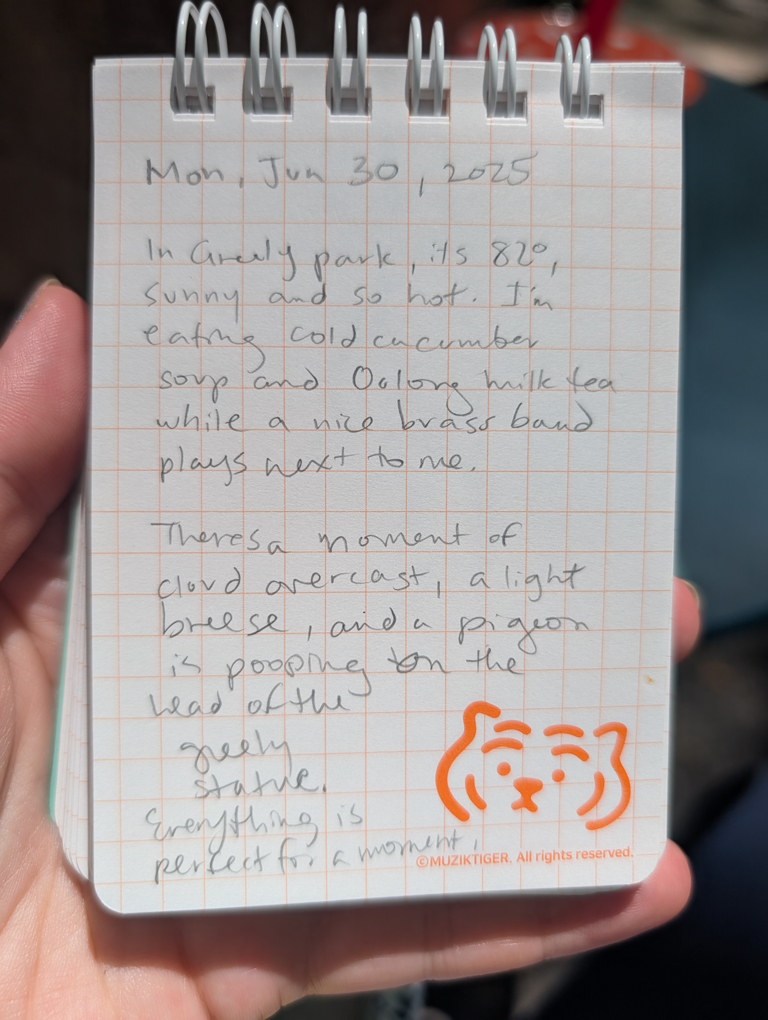 Mon, Jun 30, 2025
In Greely park, its 82°,
sunny and so hot. I'm
eating cold cucumber
soup and Oolong milk tea
while a nice brass band
plays next to me.
Theres a moment of
cloud overcast, a light
breese, and a pigeon
is pooping on the
head of the
greely
statue.
Everything is
perfect for a moment.
©MUZIKTIGER. All rights reserved.